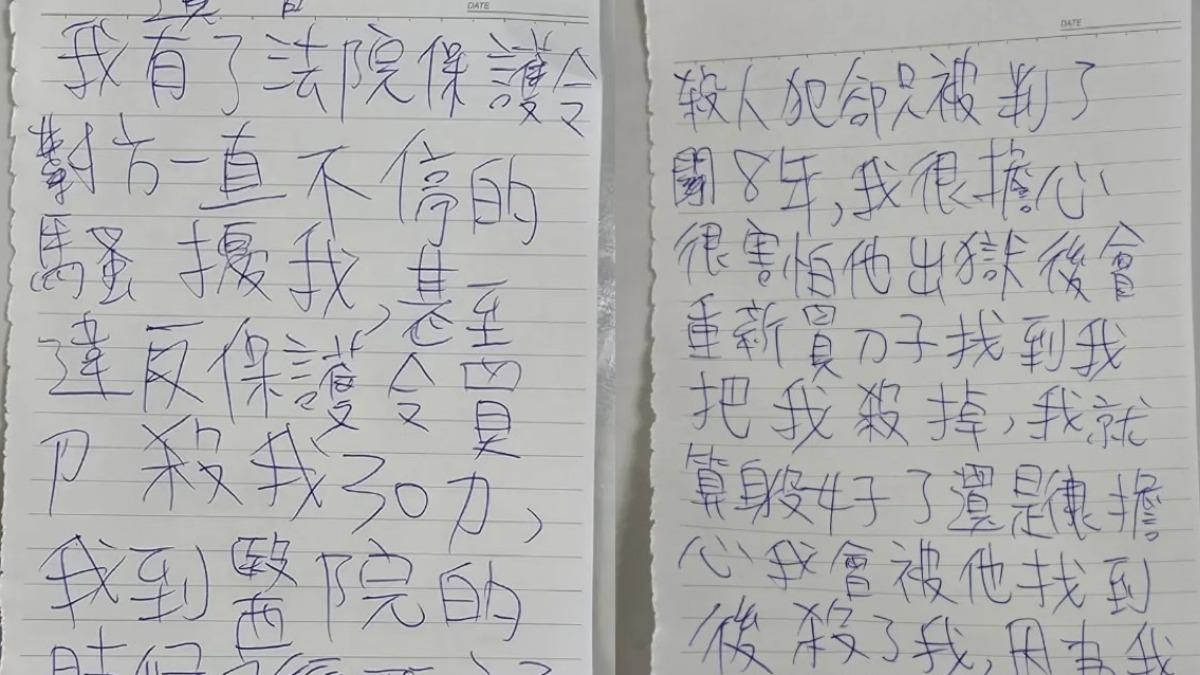 DATE
我有了法院保護令
對方一直不停的
騷擾我,甚至
違反保護令買
刀殺我30刀,
我到醫院的
DATE
殺人犯卻只被判了
關8年,我很擔心
很害怕他出獄後會
重新買刀子找到我
把我殺掉,我就
算身段好了還是很擔
心我會被他找到
後殺了我,因為我